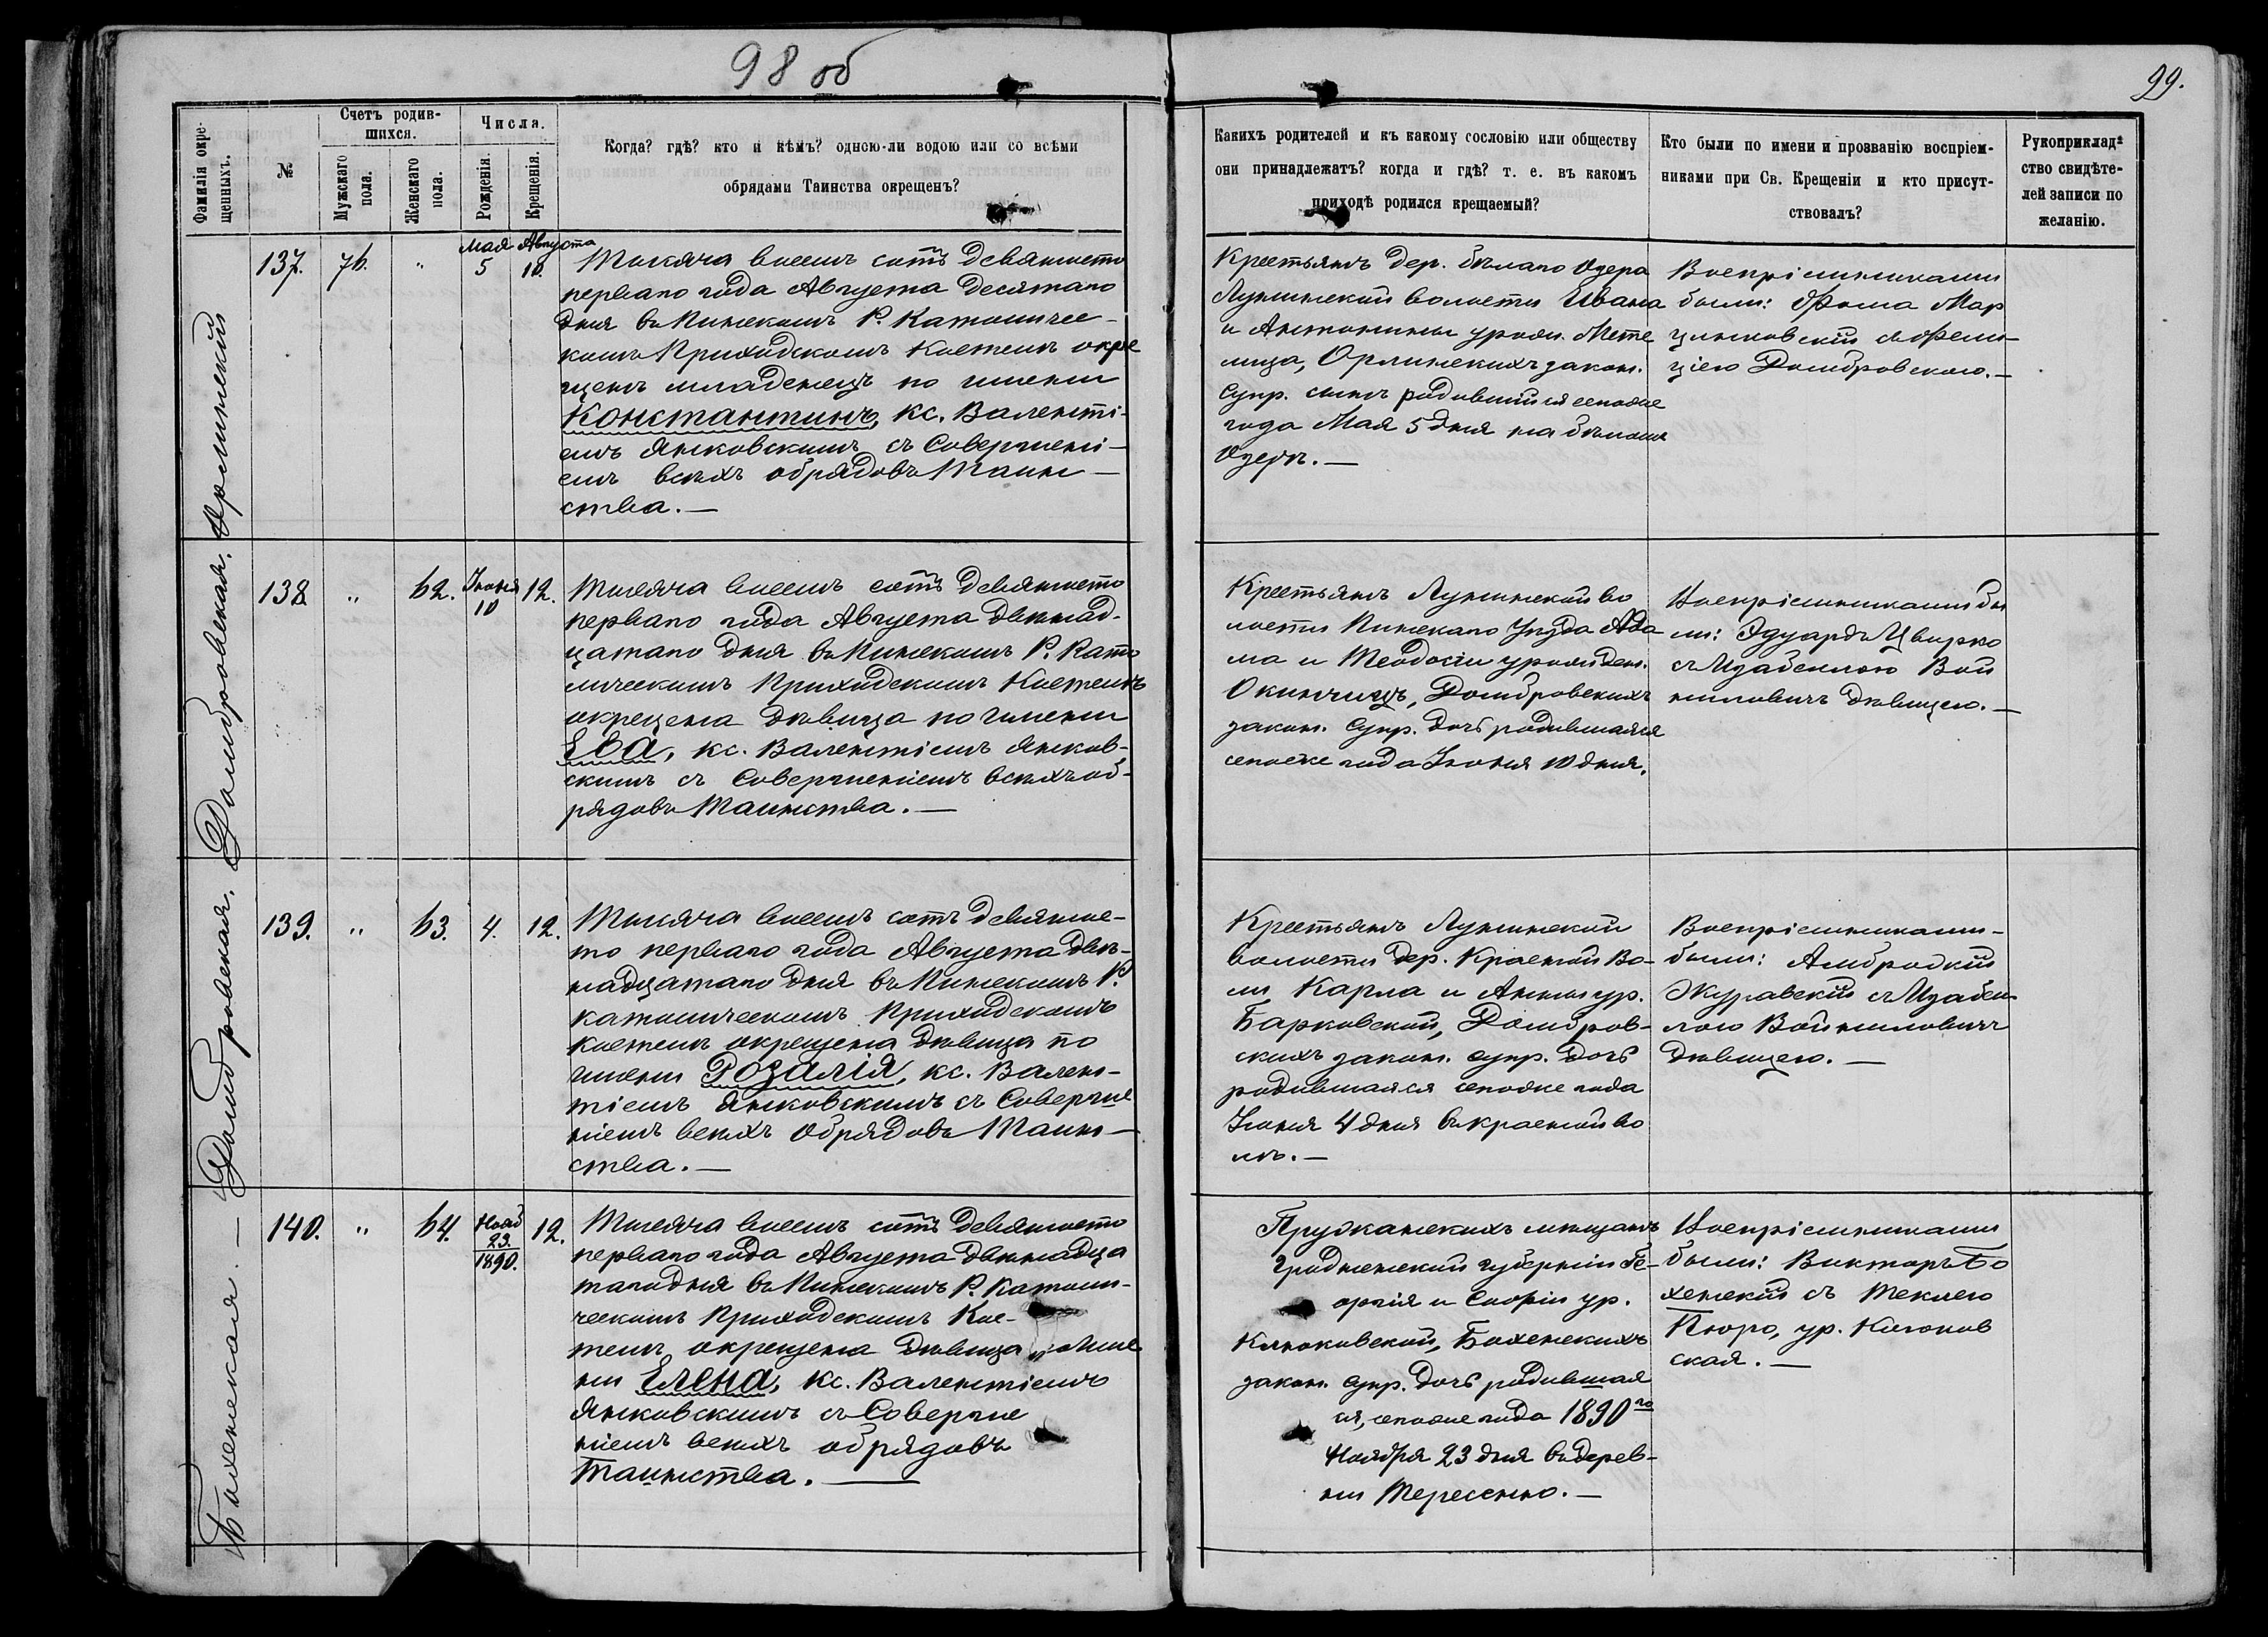 98 об
99.
Фамилія окре-
щенныхъ.
№
Счетъ родив-
шихся.
Мужскаго
пола.
Женскаго
пола.
Числа.
Рожденія.
Крещенія.
Когда? гдѣ? кто и кѣмъ? одною-ли водою или со всѣми
обрядами Таинства окрещенъ?
Какихъ родителей и къ какому сословію или обществу
они принадлежатъ? когда и гдѣ? т. е. въ какомъ
приходѣ родился крещаемый?
Кто были по имени и прозванію воспріем-
никами при Св. Крещеніи и кто присут-
ствовалъ?
Рукоприклад-
ство свидѣте-
лей записи по
желанію.
Орлинскій
137.
76.
"
Мая
5
Августа
10.
Тысяча восемь сотъ девяносто
перваго года Августа десятаго
дня въ Пинскомъ Р. Католичес-
комъ Приходскомъ Костелѣ окре
щенъ младенецъ по имени
Константинъ, кс. Валенті-
емъ Янковскимъ съ совершені-
емъ всѣхъ обрядовъ Таин-
ства.—
Крестьянъ дер. бѣлаго Озера
Лунинской волости Ивана
и Антонины урожд. Мете
лица, Орлинскихъ закон.
супр. сынъ родившійся сегоже
года Мая 5 дня на бѣломъ
Озерѣ.—
Воспріемниками
были: Фома Мар
цинковскій съ Фели-
ціею Домбровскою.—
Домбровская.
138
"
62.
Іюня
10
12.
Тысяча восемь сотъ девяносто
перваго года Августа двѣнад-
цатаго дня въ Пинскомъ Р. Като
лическомъ Приходскомъ Костелѣ
окрещена дѣвица по имени
Ева, кс. Валентіемъ Янков-
скимъ съ совершеніемъ всѣхъ об-
рядовъ Таинства.—
Крестьянъ Лунинской во
лости Пинскаго Уѣзда Ада
ма и Теодосіи урожден.
Окинчицъ, Домбровскихъ
закон. супр. дочь родившаяся
сегоже года Іюня 10 дня.
Воспріемниками бы
ли: Эдуардъ Цвирко
съ Изабеллою Вой
ниловичъ дѣвицею.—
Домбровская.
139.
"
63.
4.
12.
Тысяча восемь сотъ девянос-
то перваго года Августа двѣ-
надцатаго дня въ Пинскомъ Р.
Католическомъ Приходскомъ
Костелѣ окрещена дѣвица по
имени Розалія, кс. Вален-
тіемъ Янковскимъ съ соверше
ніемъ всѣхъ обрядовъ Таин-
ства.—
Крестьянъ Лунинской
волости дер. Красной Во-
ли Карла и Анны ур.
Барковской, Домбров-
скихъ закон. супр. дочь
родившаяся сегоже года
Іюня 4 дня въ красной во
лѣ.—
Воспріемниками-
были: Амброзій
Журавскій съ Изабел-
лою Войниловичъ
дѣвицею.—
Боженская.—
140.
"
64.
Нояб
23.
1890.
12.
Тысяча восемь сотъ девяносто
перваго года Августа двѣнадца
таго дня въ Пинскомъ Р. Католи-
ческомъ Приходскомъ Кос-
телѣ окрещена дѣвица по име
ни Елена, кс. Валентіемъ
Янковскимъ съ соверше
ніемъ всѣхъ обрядовъ
Таинства.—
Пружанскихъ мѣщанъ
Гродненской губерніи Ге-
оргія и Софіи ур.
Клюковской, Боженскихъ
закон. супр. дочь родившая
ся, сегоже года 1890го
Ноября 23 дня въ дерев-
ни Тересенно.—
Воспріемниками
были: Викторъ Бо
женскій съ Теклею
Пюро, ур. Клюков
ская.—